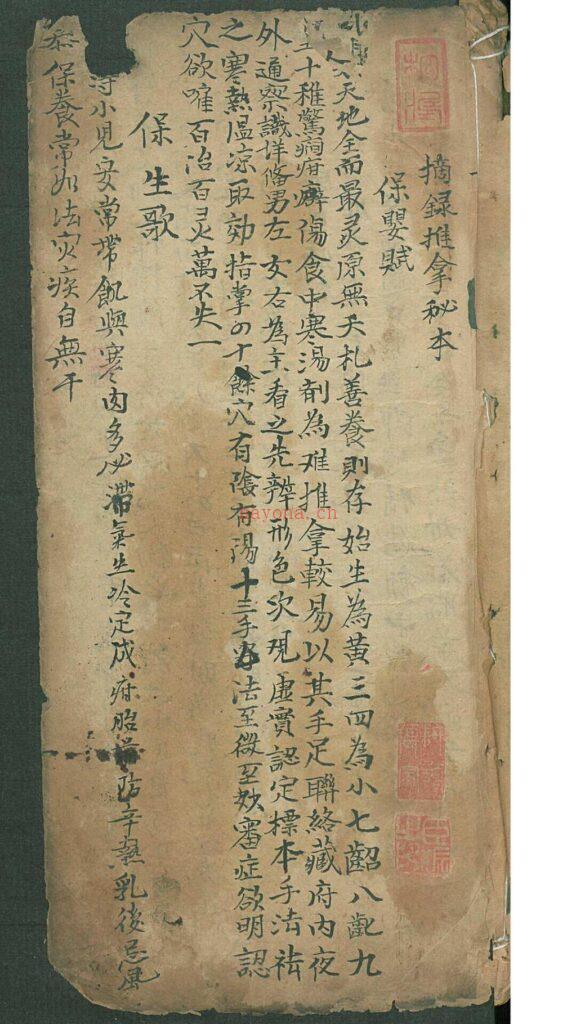 摘録推拿秘本
保嬰賦
天地全而最灵原無夭札善養則存始生為黃三四為小七齠八齓九
十稚驚癇疳癖傷食中寒湯剤為难推拿較易以其手足聯絡藏府内夜
外通察識详俻男左女右為主看之先辨形色次观虛實認定標本手法祛
之寒熱温凉取効指掌四十餘穴有陰有陽十三手法至微至妙審症欲明認
穴欲確百治百灵萬不失一
保生歌
小児安常帶飢與寒肉多必滯氣生冷定成疳胎前防辛熱乳後忌風
保養常如法灾疾自無干
dayona.cn